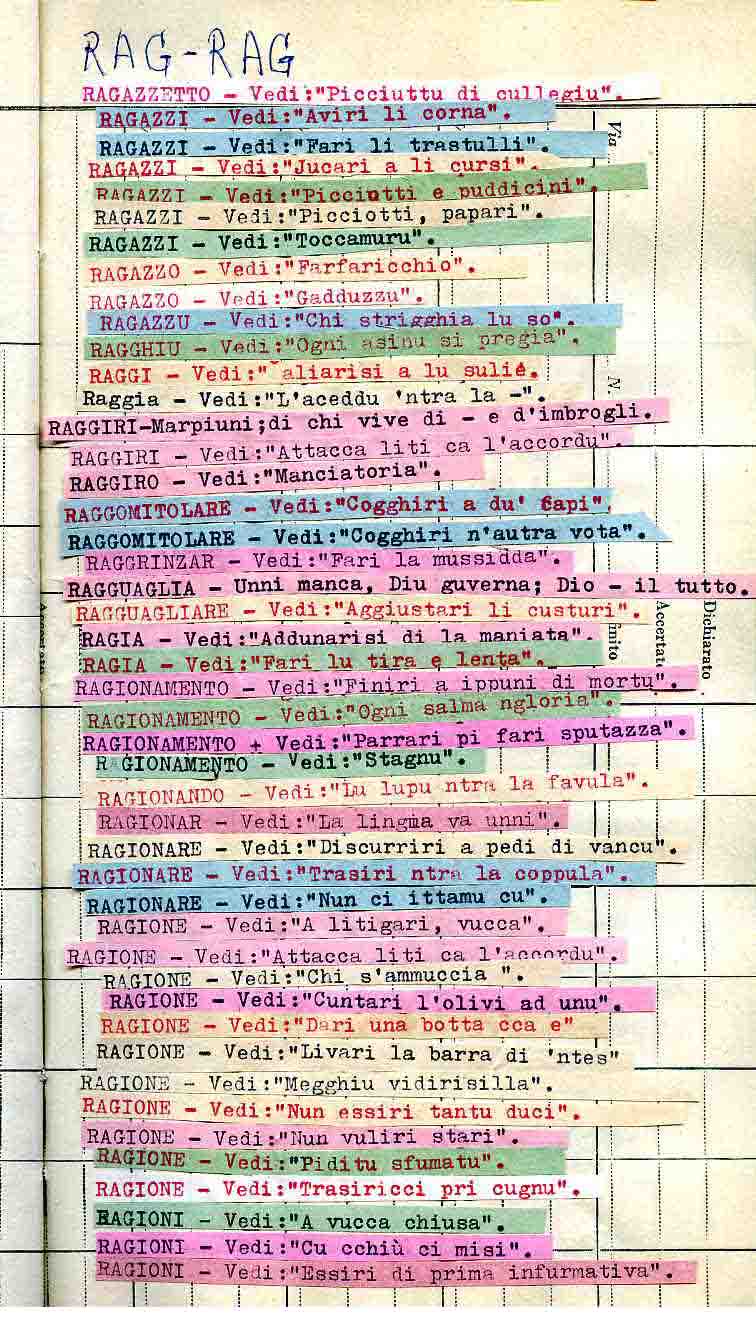 RAG-RAG
RAGAZZETTO - Vedi:"Picciuttu di cullegiu".
RAGAZZI - Vedi:"Aviri li corna".
RAGAZZI - Vedi:"Fari li trastulli".
RAGAZZI - Vedi:"Jucari a li cursi".
RAGAZZI - Vedi:"Picciotti e puddicini".
RAGAZZI - Vedi:"Picciotti, papari".
RAGAZZI - Vedi:"Toccamuru".
RAGAZZO - Vedi:"Farfaricchio".
RAGAZZO - Vedi:"Gadduzzu".
RAGAZZU - Vedi:"Chi strigghia lu so".
RAGGHIU - Vedi:"Ogni asinu si pregia".
RAGGI - Vedi:" aliarisi a lu sulié.
Raggia - Vedi:"L'aceddu 'ntra la -".
RAGGIRI-Marpiuni;di chi vive di - e d'imbrogli.
RAGGIRI - Vedi:"Attacca liti ca l'accordu".
RAGGIRO - Vedi:"Manciatoria".
RAGGOMITOLARE - Vedi:"Cogghiri a du' capi".
RAGGOMITOLARE - Vedi:"Cogghiri n'autra vota".
RAGGRINZAR - Vedi:"Fari la mussidda".
RAGGUAGLIA - Unni manca, Diu guverna; Dio - il tutto.
RAGGUAGLIARE - Vedi:"Aggiustari li custuri".
RAGIA - Vedi:"Addunarisi di la maniata".
RAGIA - Vedi:"Fari lu tira e lenta".
RAGIONAMENTO - Vedi:"Finiri a ippuni di mortu".
RAGIONAMENTO - Vedi:"Ogni salma ngloria".
RAGIONAMENTO + Vedi:"Parrari pi fari sputazza".
RAGIONAMENTO - Vedi:"Stagnu".
RAGIONANDO - Vedi:"Lu lupu ntra la favula".
RAGIONAR - Vedi:"La lingua va unni".
RAGIONARE - Vedi:"Discurriri a pedi di vancu".
RAGIONARE - Vedi:"Trasiri ntra la coppula".
RAGIONARE - Vedi:"Nun ci ittamu cu".
RAGIONE - Vedi:"A litigari, vucca".
RAGIONE - Vedi:"Attacca liti ca l'accordu".
RAGIONE - Vedi:"Chi s'ammuccia ".
RAGIONE - Vedi:"Cuntari l'olivi ad unu".
RAGIONE - Vedi:"Dari una botta cca e"
RAGIONE - Vedi:"Livari la barra di 'ntes"
RAGIONE - Vedi:"Megghiu vidirisilla".
RAGIONE - Vedi:"Nun essiri tantu duci".
RAGIONE - Vedi:"Nun vuliri stari".
RAGIONE - Vedi:"Piditu sfumatu".
RAGIONE - Vedi:"Trasiricci pri cugnu".
RAGIONI - Vedi:"A vucca chiusa".
RAGIONI - Vedi:"Cu cchiù ci misi".
RAGIONI - Vedi:"Essiri di prima infurmativa".
Via
N.
Accertato
Dichiarato